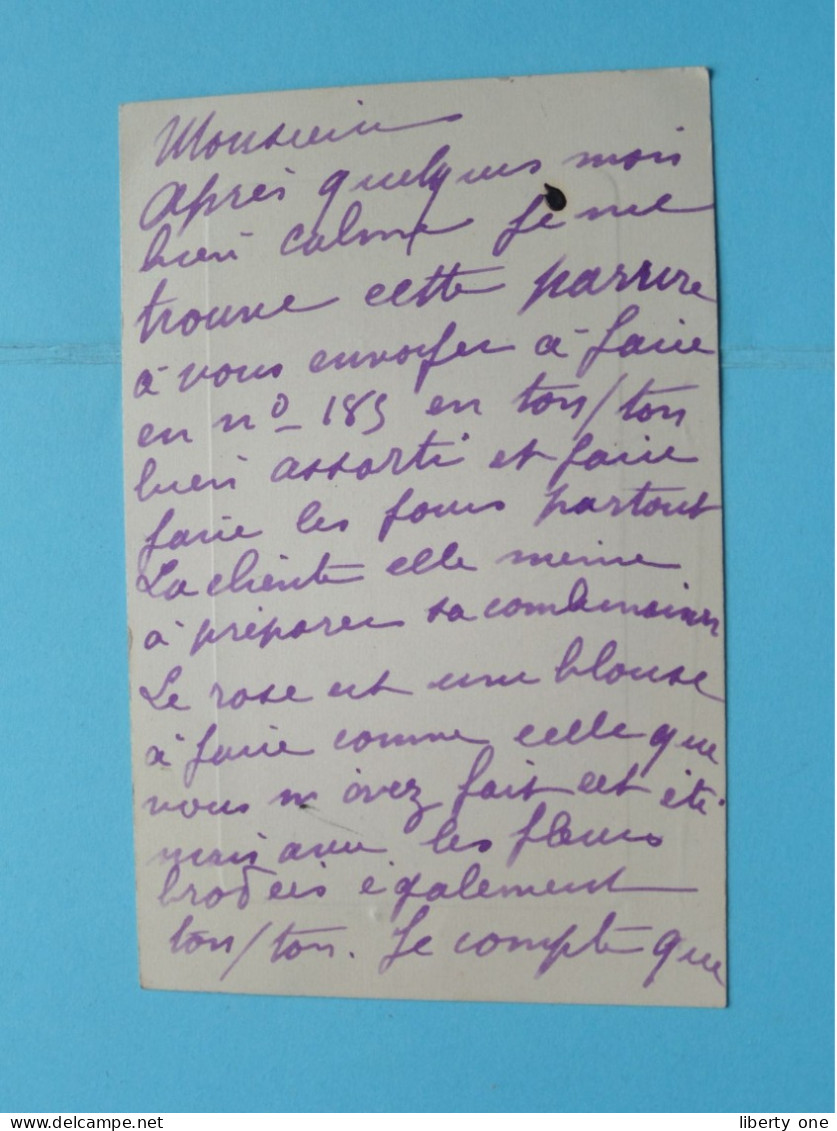 Monsieur
Après quelques mois
bien calme je me
trouve cette parrure
à vous envoyer à faire
en no 185 en ton/ton
bien assorti et faire
faire les jours partout
La cliente elle meme
à préparer sa combinaison
Le rose est une blouse
à faire comme celle que
vous m'avez fait cet été
mais avec les fleurs
brodées également
ton/ton. Je compte que
liberty one